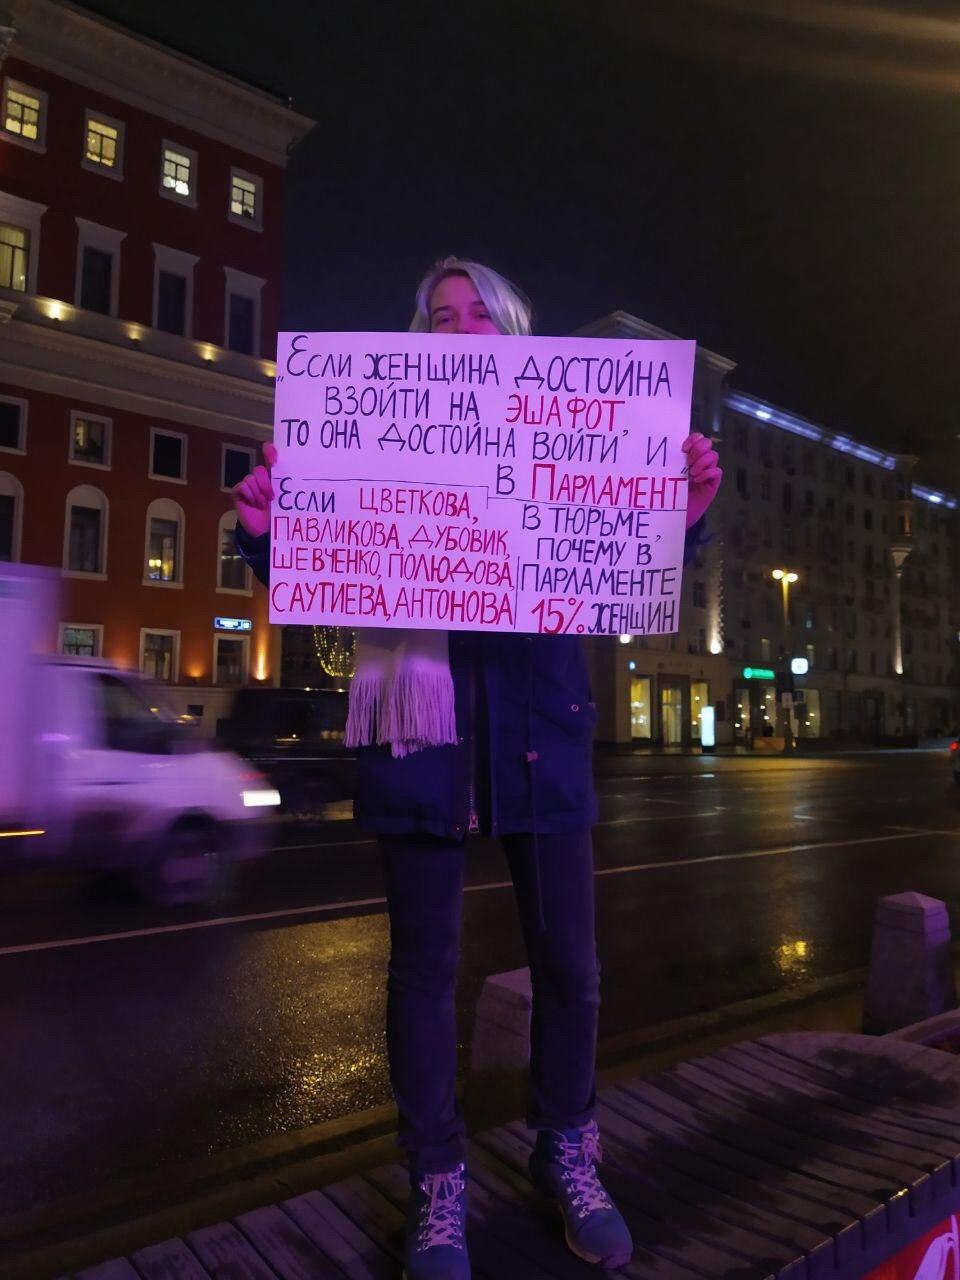 „Если женщина достойна
взойти на эшафот,
то она достойна войти" и
в „Парламент
Если Цветкова,
Павликова, Дубовик,
Шевченко, Полюдова,
Саутиева, Антонова
в тюрьме,
почему в
парламенте
15% женщин